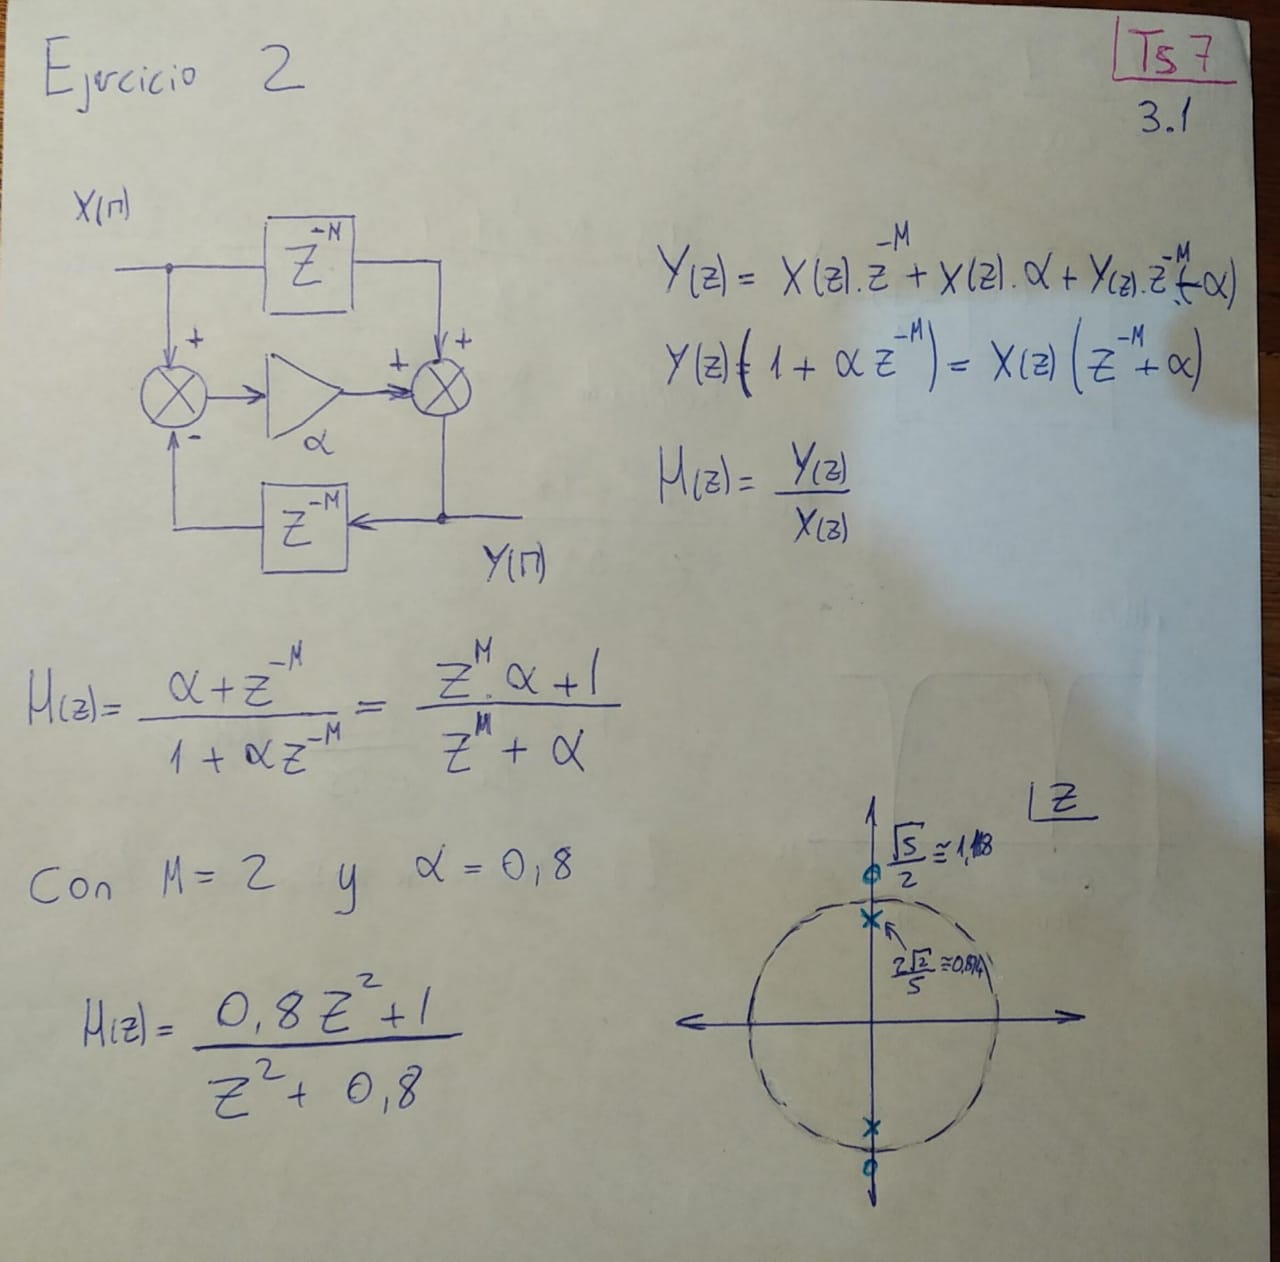 Ejercicio 2
Ts 7
3.1
X(n)
z^-M
+
+
+
α
-
z^-M
Y(n)
Y(z) = X(z).z^-M + X(z).α + Y(z).z^-M.(-α)
Y(z)(1 + αz^-M) = X(z)(z^-M + α)
H(z) = Y(z)/X(z)
H(z) = (α + z^-M)/(1 + αz^-M) = (z^M.α + 1)/(z^M + α)
Con M = 2 y α = 0,8
H(z) = (0,8z^2 + 1)/(z^2 + 0,8)
z
√5/2 ≅ 1,118
2√2/5 ≅